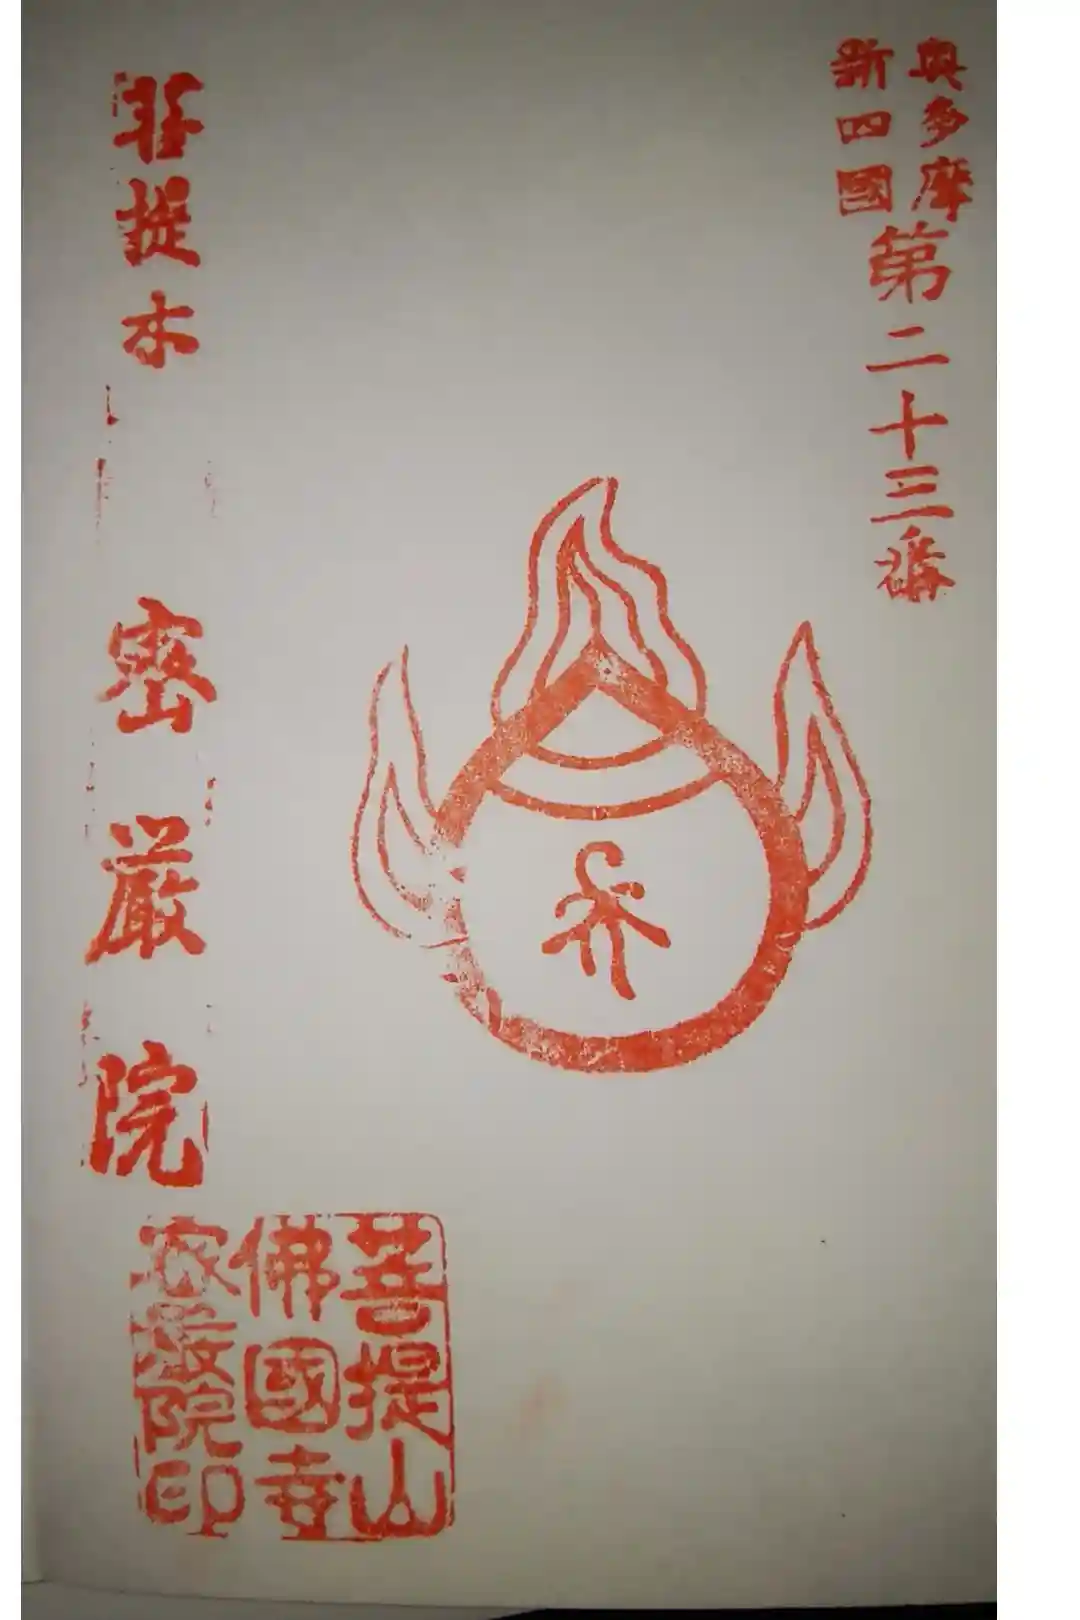 奥多摩
新四國
第二十三番
菩提木
密厳院
菩提山
佛國寺
密嚴院印